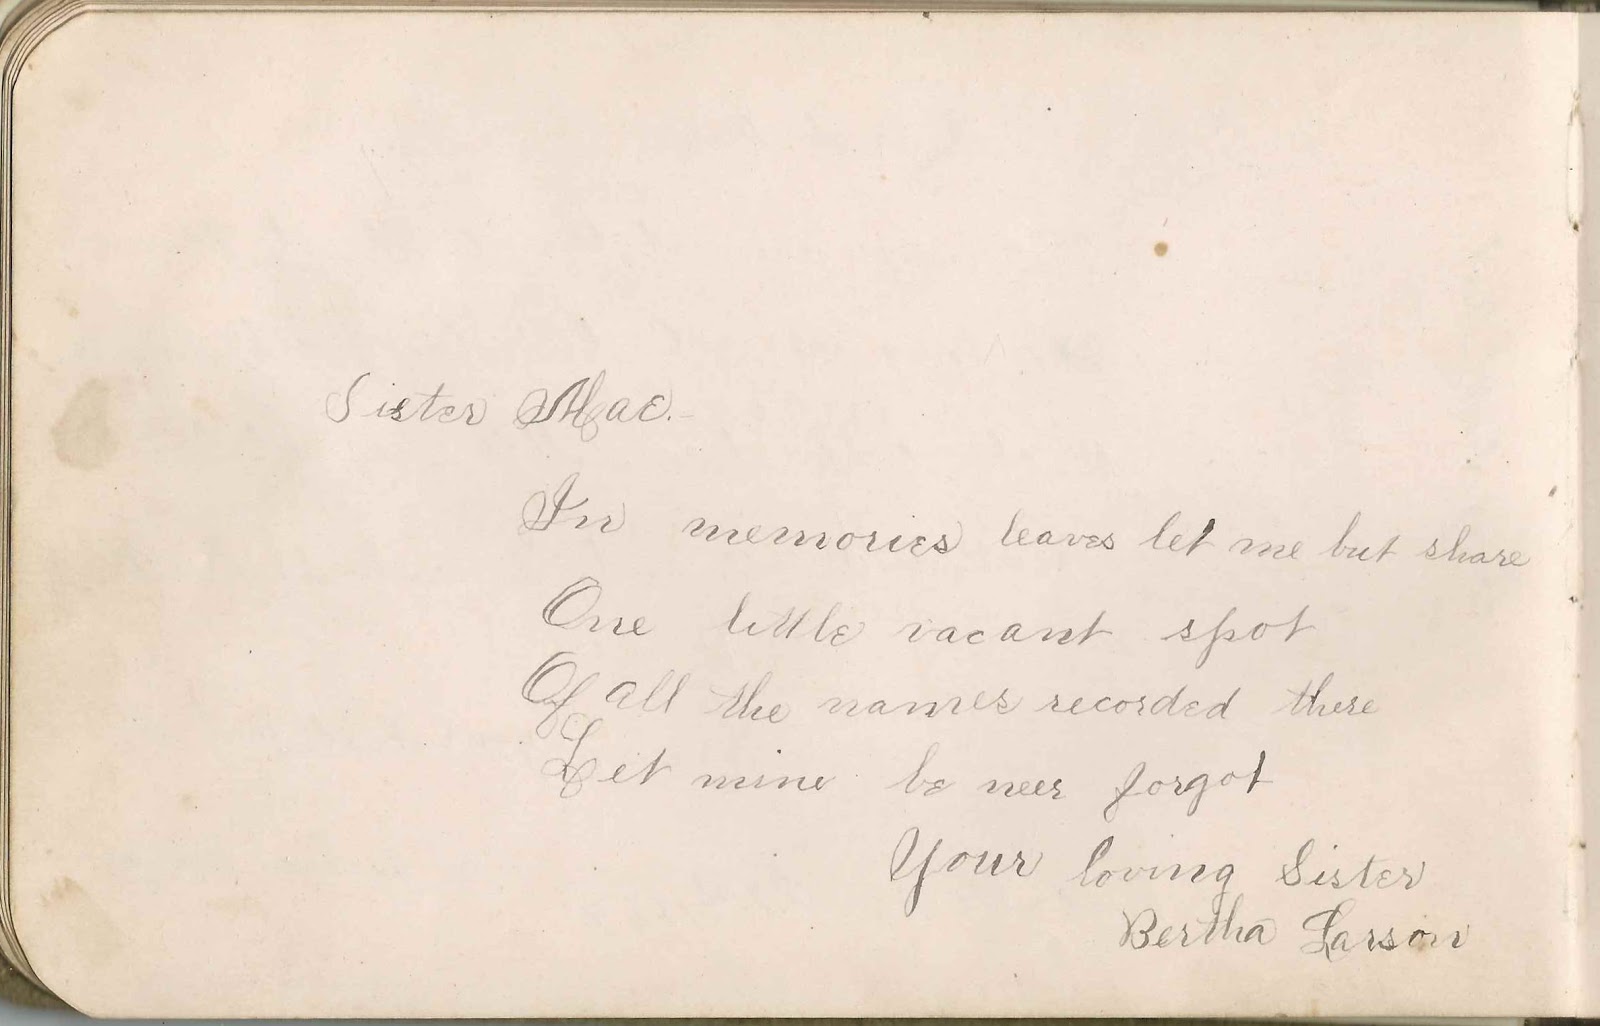 Sister Mae.-
In memories leaves let me but share
One little vacant spot
Of all the names recorded there
Let mine be neer forgot
Your loving Sister
Bertha Larson